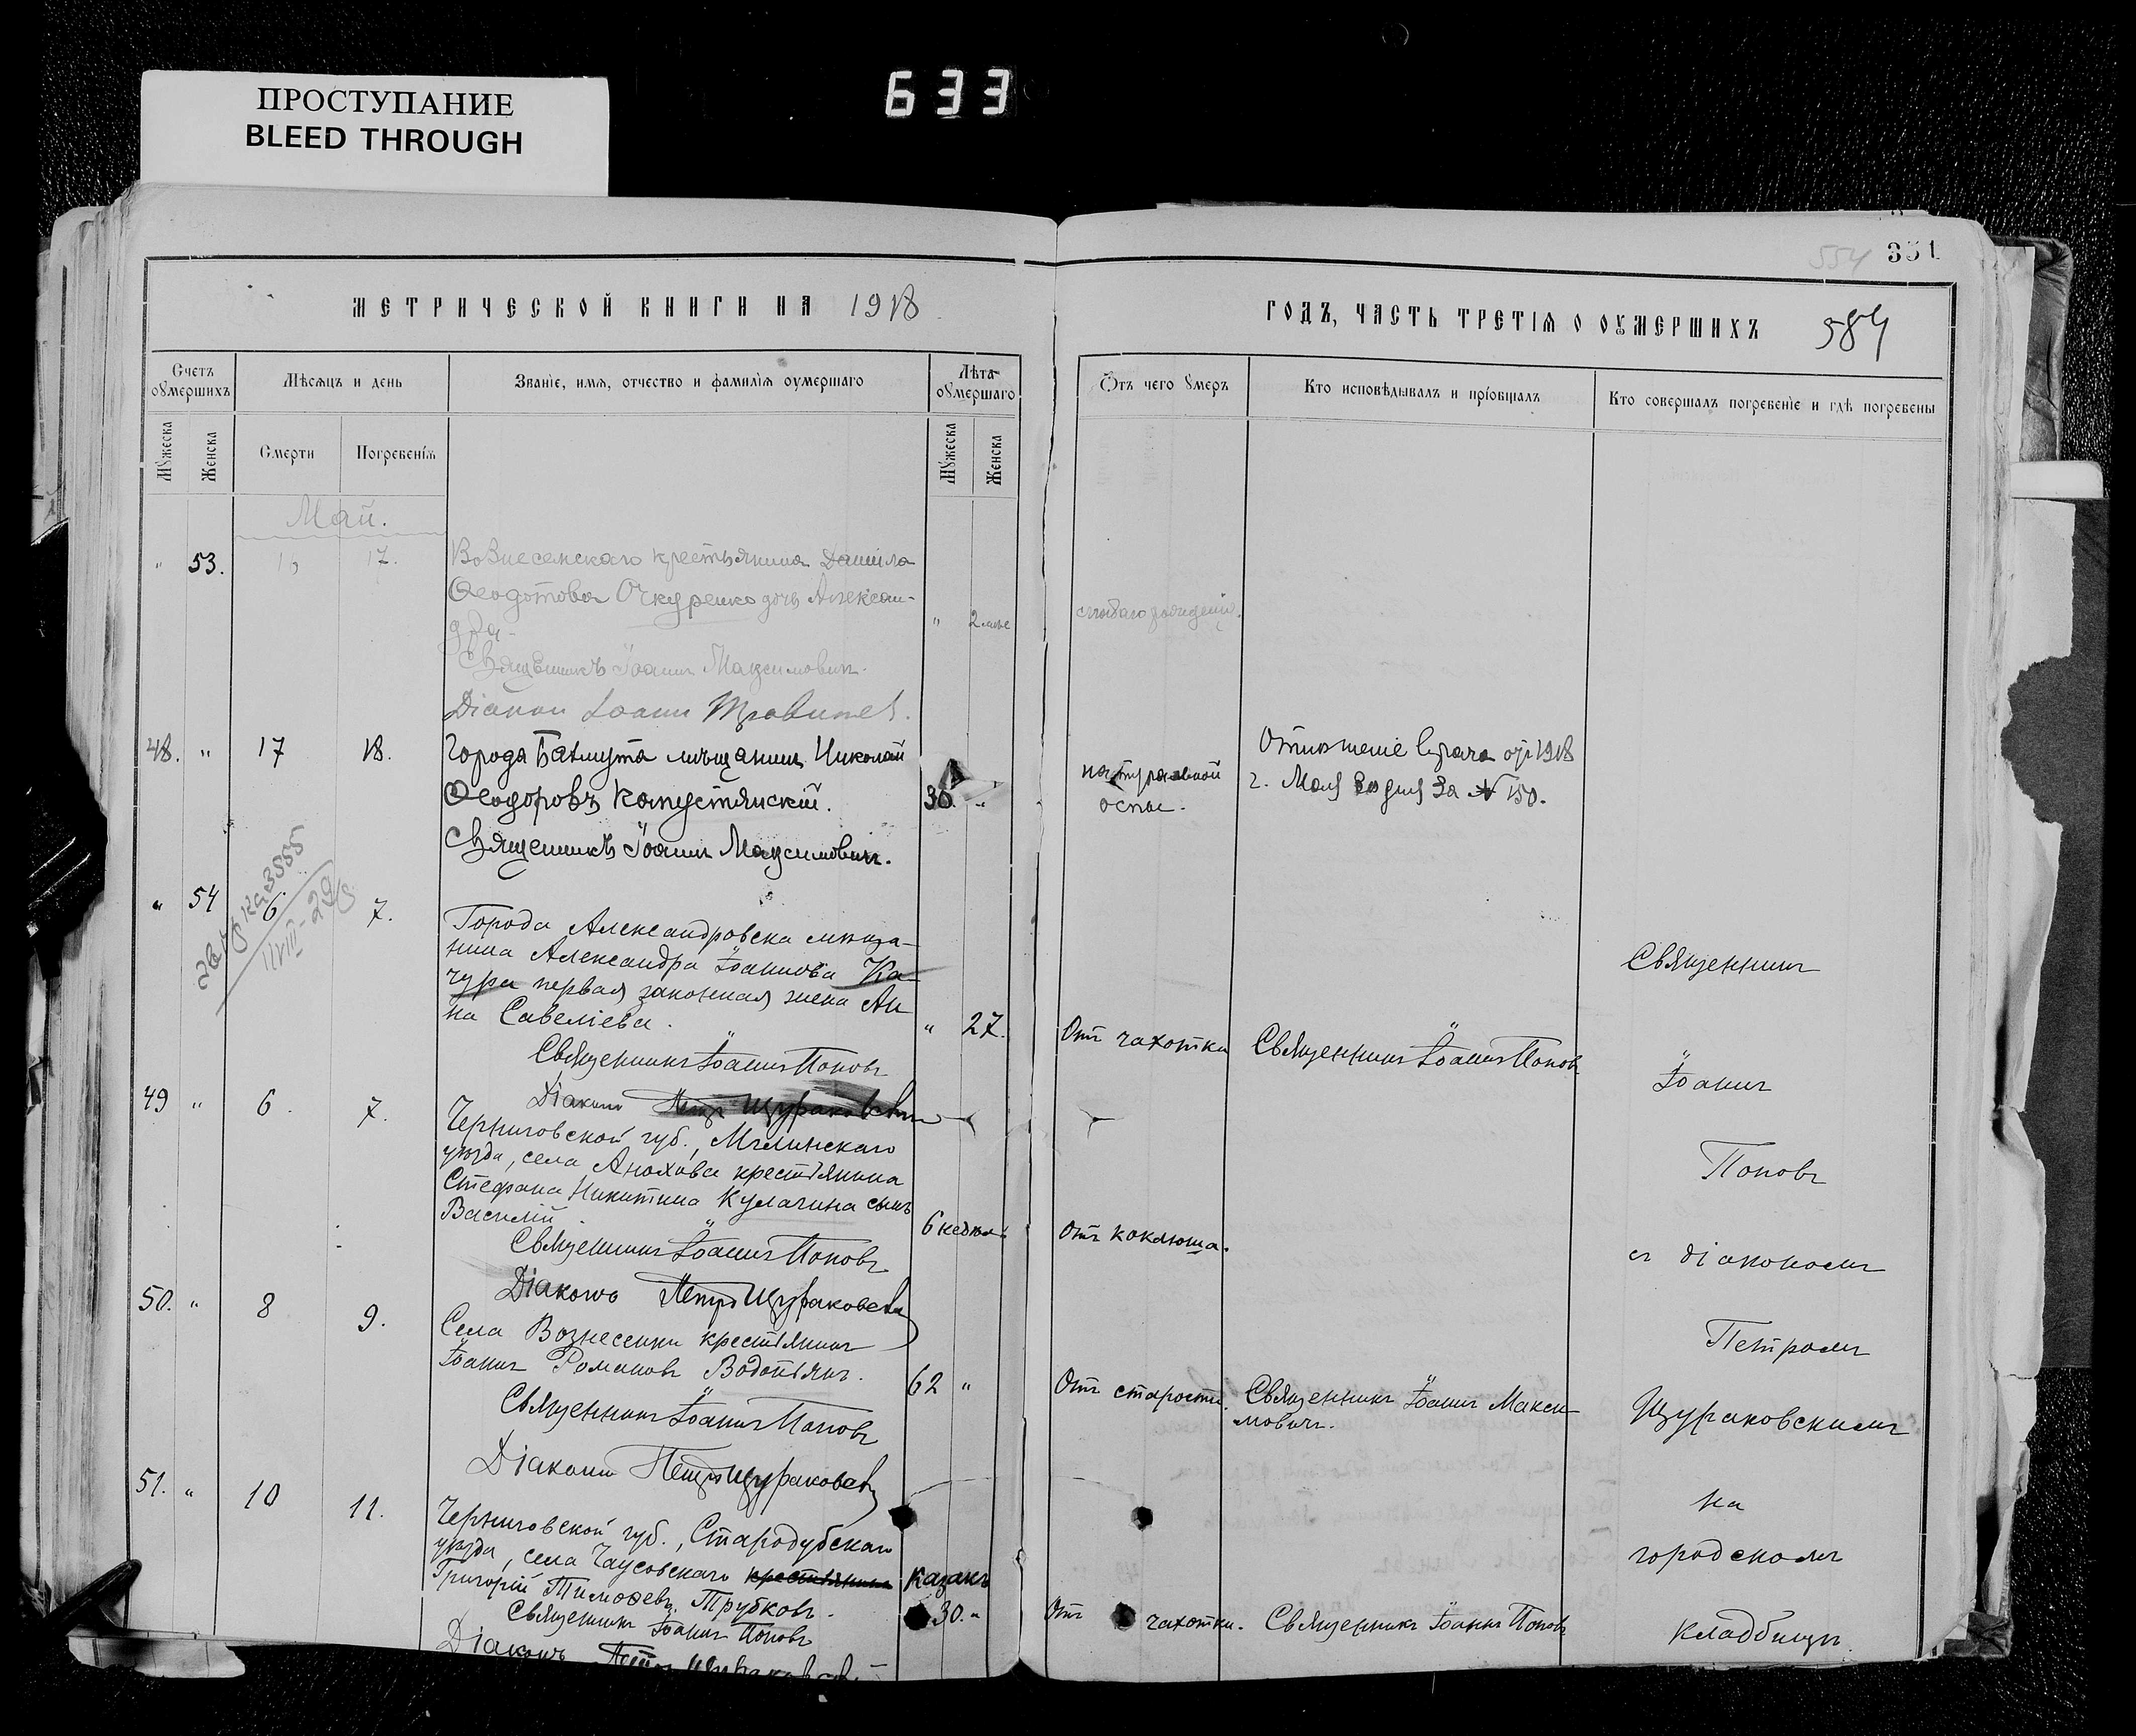 633
ПРОСТУПАНИЕ
BLEED THROUGH
554 331
МЕТРИЧЕСКОЙ КНИГИ НА 1918
ГОДЪ, ЧАСТЬ ТРЕТІѦ О ОУМЕРШИХЪ 584
Счетъ оумершихъ
Мѣсяцъ и день
Званіе, имя, отчество и фамиліѧ оумершаго
Лѣта оумершаго
Отъ чего умеръ
Кто исповѣдывалъ и пріобщалъ
Кто совершалъ погребеніе и гдѣ погребены
Мужеска
Женска
Смерти
Погребеніѧ
Мужеска
Женска
Май.
" 53. 17. Вознесенскаго крестьянина Даніила
Ѳеодотова Очкуренко дочь Алексан-
дра " 2
Священникъ Іоаннъ Максимовичъ.
Діакон Іоанн
48. " 17 18. Города Бахмута мѣщанинъ Николай
Ѳеодоровъ Капустянскій. 30. "
натуральной
оспы.
Отношеніе Врача от 1918
г. Мая за № 150.
Священникъ Іоаннъ Максимовичъ.
" 54 6. 7. Города Александровска мѣща-
нина Александра Іоаннова Ка-
чура первая законная жена Ан-
на Савеліева. " 27. Отъ чахотки Священникъ Іоаннъ Поповъ
Священникъ Іоаннъ Поповъ
Діаконъ Петръ Щураковскій
49 " 6. 7. Черниговской губ., Мглинскаго
уѣзда, села Анохова крестьянина
Стефана Никитина Кулагина сынъ
Василій. 6 недѣль Отъ коклюша.
Священникъ Іоаннъ Поповъ
Діаконъ Петръ Щураковскій
50. " 8 9. Села Вознесенки крестьянинъ
Іоаннъ Романовъ Водопьянъ. 62 " Отъ старости. Священникъ Іоаннъ Макси-
мовичъ.
Священникъ Іоаннъ Поповъ
Діаконъ Петръ Щураковскій
51. " 10 11. Черниговской губ., Стародубскаго
уѣзда, села Чаусовскаго крестьянинъ казакъ
Григорій Тимоѳеевъ Трубковъ. 30. " Отъ чахотки. Священникъ Іоаннъ Поповъ
Священникъ Іоаннъ Поповъ
Діаконъ Петръ Щураковскій
Священникъ
Іоаннъ
Поповъ
съ діакономъ
Петромъ
Щураковскимъ
на
городскомъ
кладбищѣ.